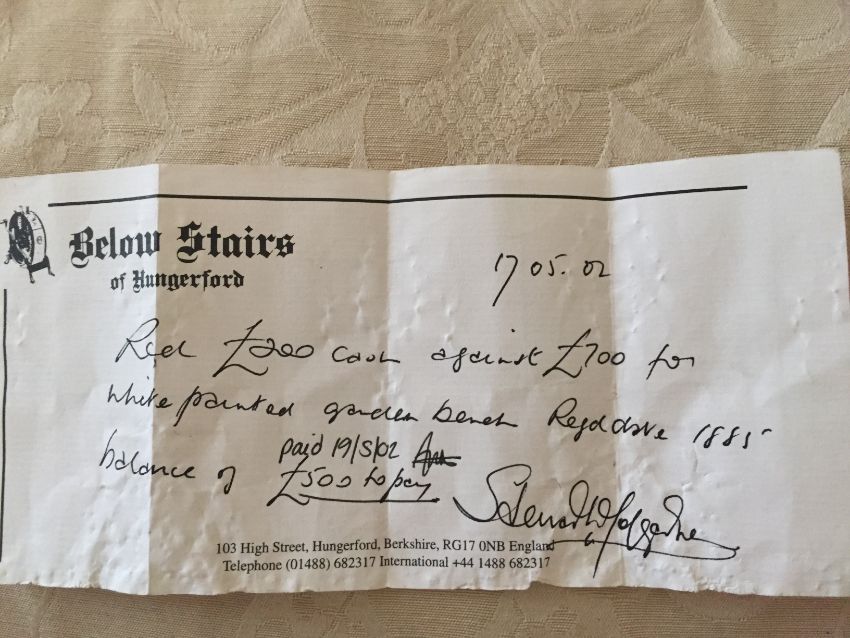 Below Stairs
of Hungerford
17 05. 02
Recd £200 cash against £700 for
white painted garden bench Regd date 1885
paid 19/5/02
balance of £500 to pay
103 High Street, Hungerford, Berkshire, RG17 0NB England
Telephone (01488) 682317 International +44 1488 682317